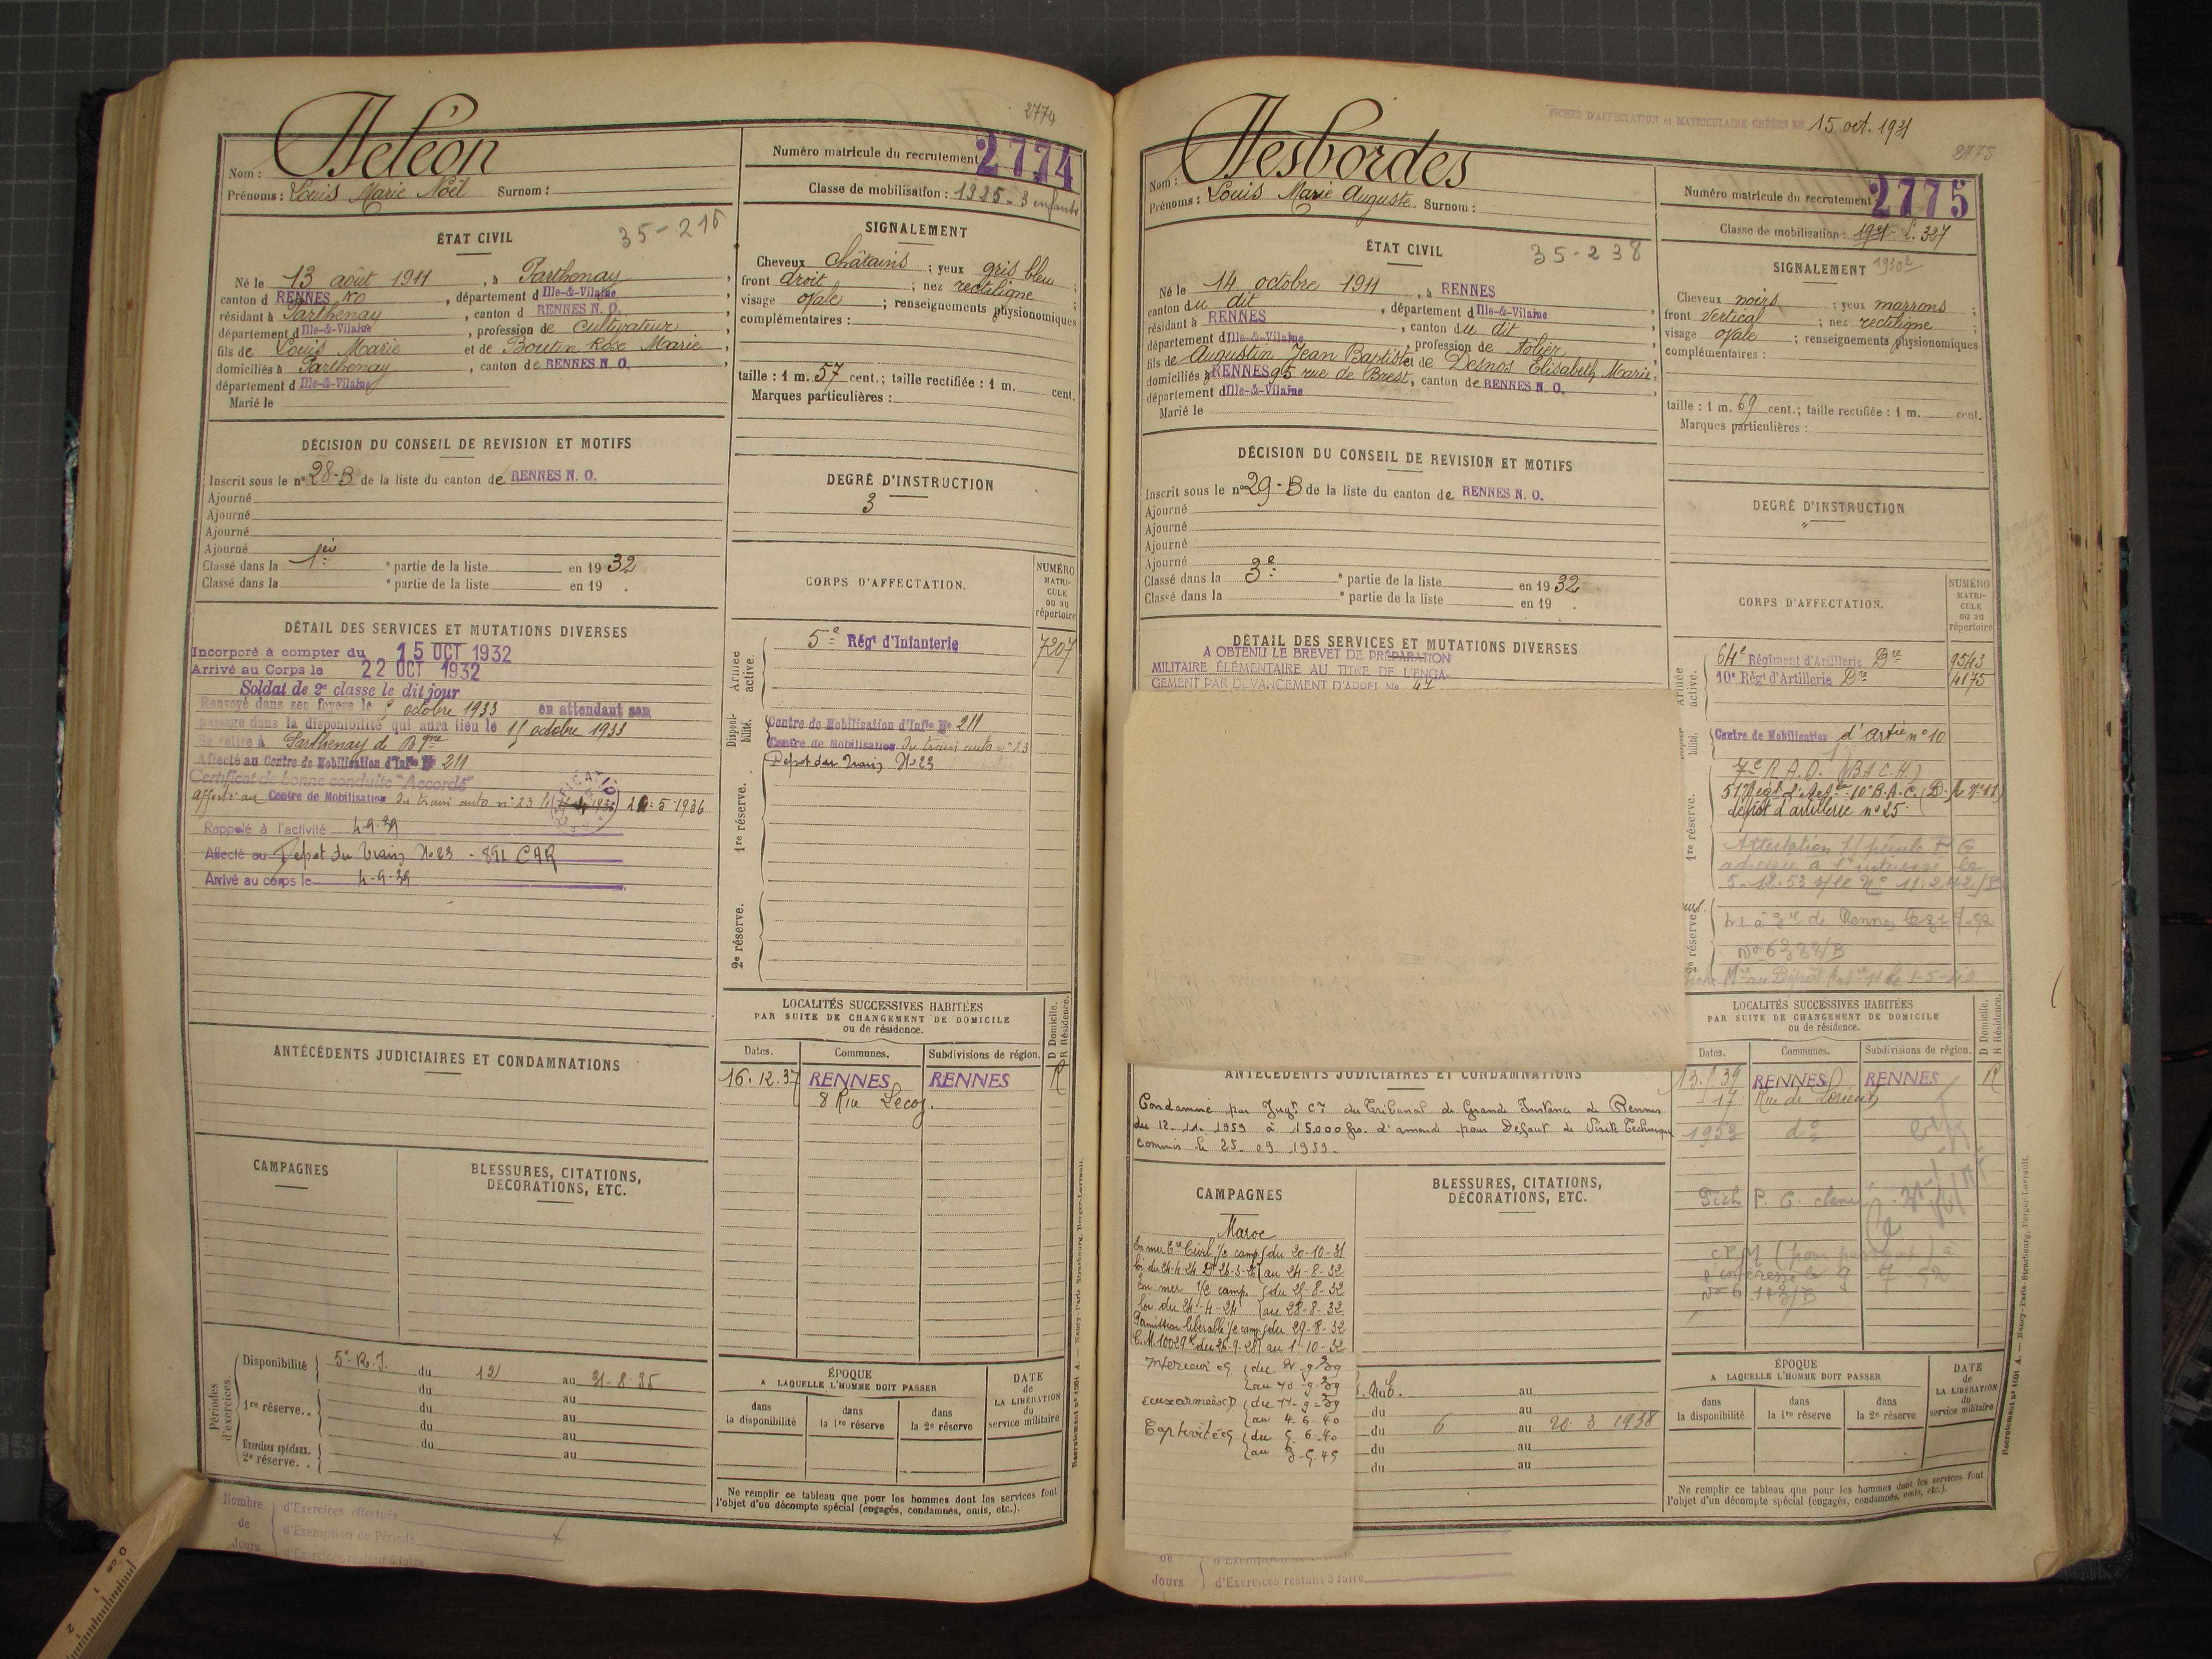 2774
Deléon
Nom :
Prénoms : Louis Marie Noël Surnom :
Numéro matricule du recrutement 2774
Classe de mobilisation : 1925 - 3 enfants
ÉTAT CIVIL
35-216
Né le 13 août 1911, à Parthenay,
canton d RENNES NO, département d Ille-&-Vilaine
résidant à Parthenay, canton d RENNES N. O.
département d Ille-&-Vilaine, profession de cultivateur,
fils de Louis Marie et de Boutin Rose Marie,
domiciliés à Parthenay, canton de RENNES N. O.
département d Ille-&-Vilaine
Marié le
SIGNALEMENT
Cheveux châtains ; yeux gris bleu ;
front droit ; nez rectiligne ;
visage ovale ; renseignements physionomiques
complémentaires :
taille : 1 m. 57 cent.; taille rectifiée : 1 m. cent.
Marques particulières :
DÉCISION DU CONSEIL DE REVISION ET MOTIFS
Inscrit sous le n° 28-B de la liste du canton de RENNES N. O.
Ajourné
Ajourné
Ajourné
Ajourné
Classé dans la 1ère ° partie de la liste en 1932
Classé dans la ° partie de la liste en 19 .
DEGRÉ D'INSTRUCTION
3
DÉTAIL DES SERVICES ET MUTATIONS DIVERSES
Incorporé à compter du 15 OCT 1932
Arrivé au Corps le 22 OCT 1932
Soldat de 2e classe le dit jour
Renvoyé dans ses foyers le octobre 1933 en attendant son
passage dans la disponibilité qui aura lieu le 15 octobre 1933
Se retire à Parthenay de Bgne
Affecté au Centre de Mobilisation d'Infie N° 211
Certificat de bonne conduite "Accordé"
Affecté au Centre de Mobilisation du train auto n° 23 5-1936
Rappelé à l'activité 4-9-39
Affecté au Dépôt du Train N° 23 - 891 CAR
Arrivé au corps le 4-9-39
CORPS D'AFFECTATION.
NUMÉRO MATRICULE ou au répertoire
Armée active.
5e Régt d'Infanterie 7207
Disponibilité.
Centre de Mobilisation d'Infie N° 211
Centre de Mobilisation du train auto n° 23
Dépôt du Train N° 23
1re réserve.
2e réserve.
ANTÉCÉDENTS JUDICIAIRES ET CONDAMNATIONS
LOCALITÉS SUCCESSIVES HABITÉES
PAR SUITE DE CHANGEMENT DE DOMICILE
ou de résidence.
D Domicile.
R Résidence.
Dates. Communes. Subdivisions de région.
16.12.37 RENNES RENNES R
8 Rue Lecoz.
CAMPAGNES
BLESSURES, CITATIONS,
DÉCORATIONS, ETC.
Périodes d'exercices.
Disponibilité 5e R.I. du 12 au 31-8-35
du au
1re réserve.. du au
du au
Exercices spéciaux. du au
2e réserve. .
ÉPOQUE
A LAQUELLE L'HOMME DOIT PASSER
dans la disponibilité
dans la 1re réserve
dans la 2e réserve
DATE de LA LIBÉRATION du service militaire
Ne remplir ce tableau que pour les hommes dont les services font
l'objet d'un décompte spécial (engagés, condamnés, omis, etc.).
Recrutement n° 1001 A. — Nancy-Paris-Strasbourg, Berger-Levrault.
Nombre de Jours
d'Exercices effectués
d'Exemption de Période
d'Exercices restant à faire
FICHES D'AFFECTATION et MATRICULAIRE CRÉÉES LE 15 oct. 1931
2775
Desbordes
Nom :
Prénoms : Louis Marie Auguste Surnom :
Numéro matricule du recrutement 2775
Classe de mobilisation : 1931 - L. 327
ÉTAT CIVIL
35-238
Né le 14 octobre 1911, à RENNES
canton du dit, département d Ille-&-Vilaine
résidant à RENNES, canton du dit
département d Ille-&-Vilaine, profession de tôlier,
fils de Augustin Jean Baptiste et de Desnos Elisabeth Marie,
domiciliés à RENNES 95 rue de Brest, canton de RENNES N. O.
département d Ille-&-Vilaine
Marié le
SIGNALEMENT
Cheveux noirs ; yeux marrons ;
front vertical ; nez rectiligne ;
visage ovale ; renseignements physionomiques
complémentaires :
taille : 1 m. 69 cent.; taille rectifiée : 1 m. cent.
Marques particulières :
DÉCISION DU CONSEIL DE REVISION ET MOTIFS
Inscrit sous le n° 29-B de la liste du canton de RENNES N. O.
Ajourné
Ajourné
Ajourné
Ajourné
Classé dans la 3e ° partie de la liste en 1932
Classé dans la ° partie de la liste en 19 .
DEGRÉ D'INSTRUCTION
"
DÉTAIL DES SERVICES ET MUTATIONS DIVERSES
A OBTENU LE BREVET DE PRÉPARATION
MILITAIRE ÉLÉMENTAIRE AU TITRE DE L'ENGA-
GEMENT PAR DEVANCEMENT D'APPEL No 41
CORPS D'AFFECTATION.
NUMÉRO MATRICULE ou au répertoire
64e Régiment d'Artillerie Dre 9543
10e Régt d'Artillerie Dre 4175
Centre de Mobilisation d'Artie n° 10
7e R.A.D. (B.A.C.H)
dépôt d'artillerie n° 25.
1re réserve.
Attestation
adressée à l'intéressé le
5-12-53 s/le N° 11.242/B
2e réserve.
N° 6388/B
ANTÉCÉDENTS JUDICIAIRES ET CONDAMNATIONS
Condamné par Jugt Ce du Tribunal de Grande Instance de Rennes
du 12-11-1959 à 15.000 frs. d'amende pour Défaut de Visite Technique
commis le 25-09-1959.
LOCALITÉS SUCCESSIVES HABITÉES
PAR SUITE DE CHANGEMENT DE DOMICILE
ou de résidence.
D Domicile.
R Résidence.
Dates. Communes. Subdivisions de région.
RENNES RENNES R
17 Rue de Lorient
1953 do
CAMPAGNES
BLESSURES, CITATIONS,
DÉCORATIONS, ETC.
Maroc
En mer Gre Civil 1/2 camp. du 20-10-31
loi du 24-4-24 au 24-8-32
En mer 1/2 camp. du 25-8-32
loi du 24-4-24 au 28-8-32
Permission libérable 1/2 camp. du 29-8-32
au 1-10-32
Intérieur CS du 2-9-39
au 10-9-39
aux armées CD du 11-9-39
au 4-6-40
Captivité CS du 5-6-40
au 3-5-45
au
du au
du 6 au 20-3 1938
du au
du au
ÉPOQUE
A LAQUELLE L'HOMME DOIT PASSER
dans la disponibilité
dans la 1re réserve
dans la 2e réserve
DATE de LA LIBÉRATION du service militaire
Ne remplir ce tableau que pour les hommes dont les services font
l'objet d'un décompte spécial (engagés, condamnés, omis, etc.).
Recrutement n° 1001 A. — Nancy-Paris-Strasbourg, Berger-Levrault.
de Jours
d'Exercices restant à faire